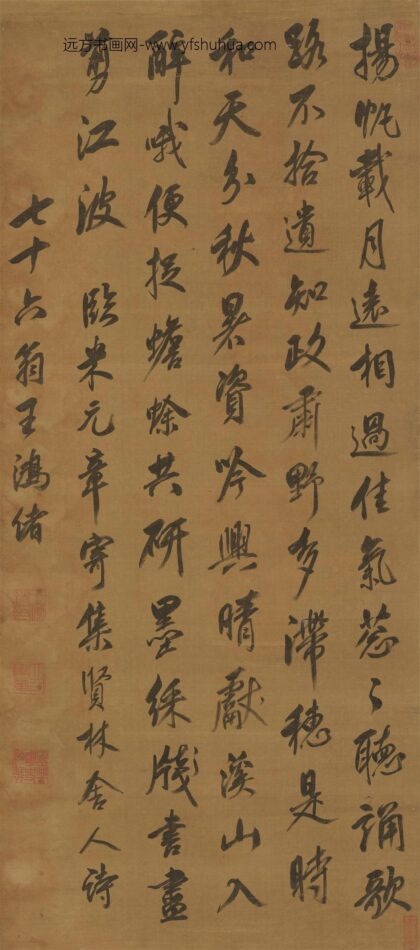 远方书画网-www.yfshuhua.com
揚帆載月遠相過佳氣葱々聽誦歌
路不拾遺知政肅野多滯穗是時
和天分秋暑資吟興晴獻溪山入
醉哦便捉蟾蜍共研墨綵牋書盡
剪江波 臨米元章寄集賢林舍人詩
七十六翁王鴻緒